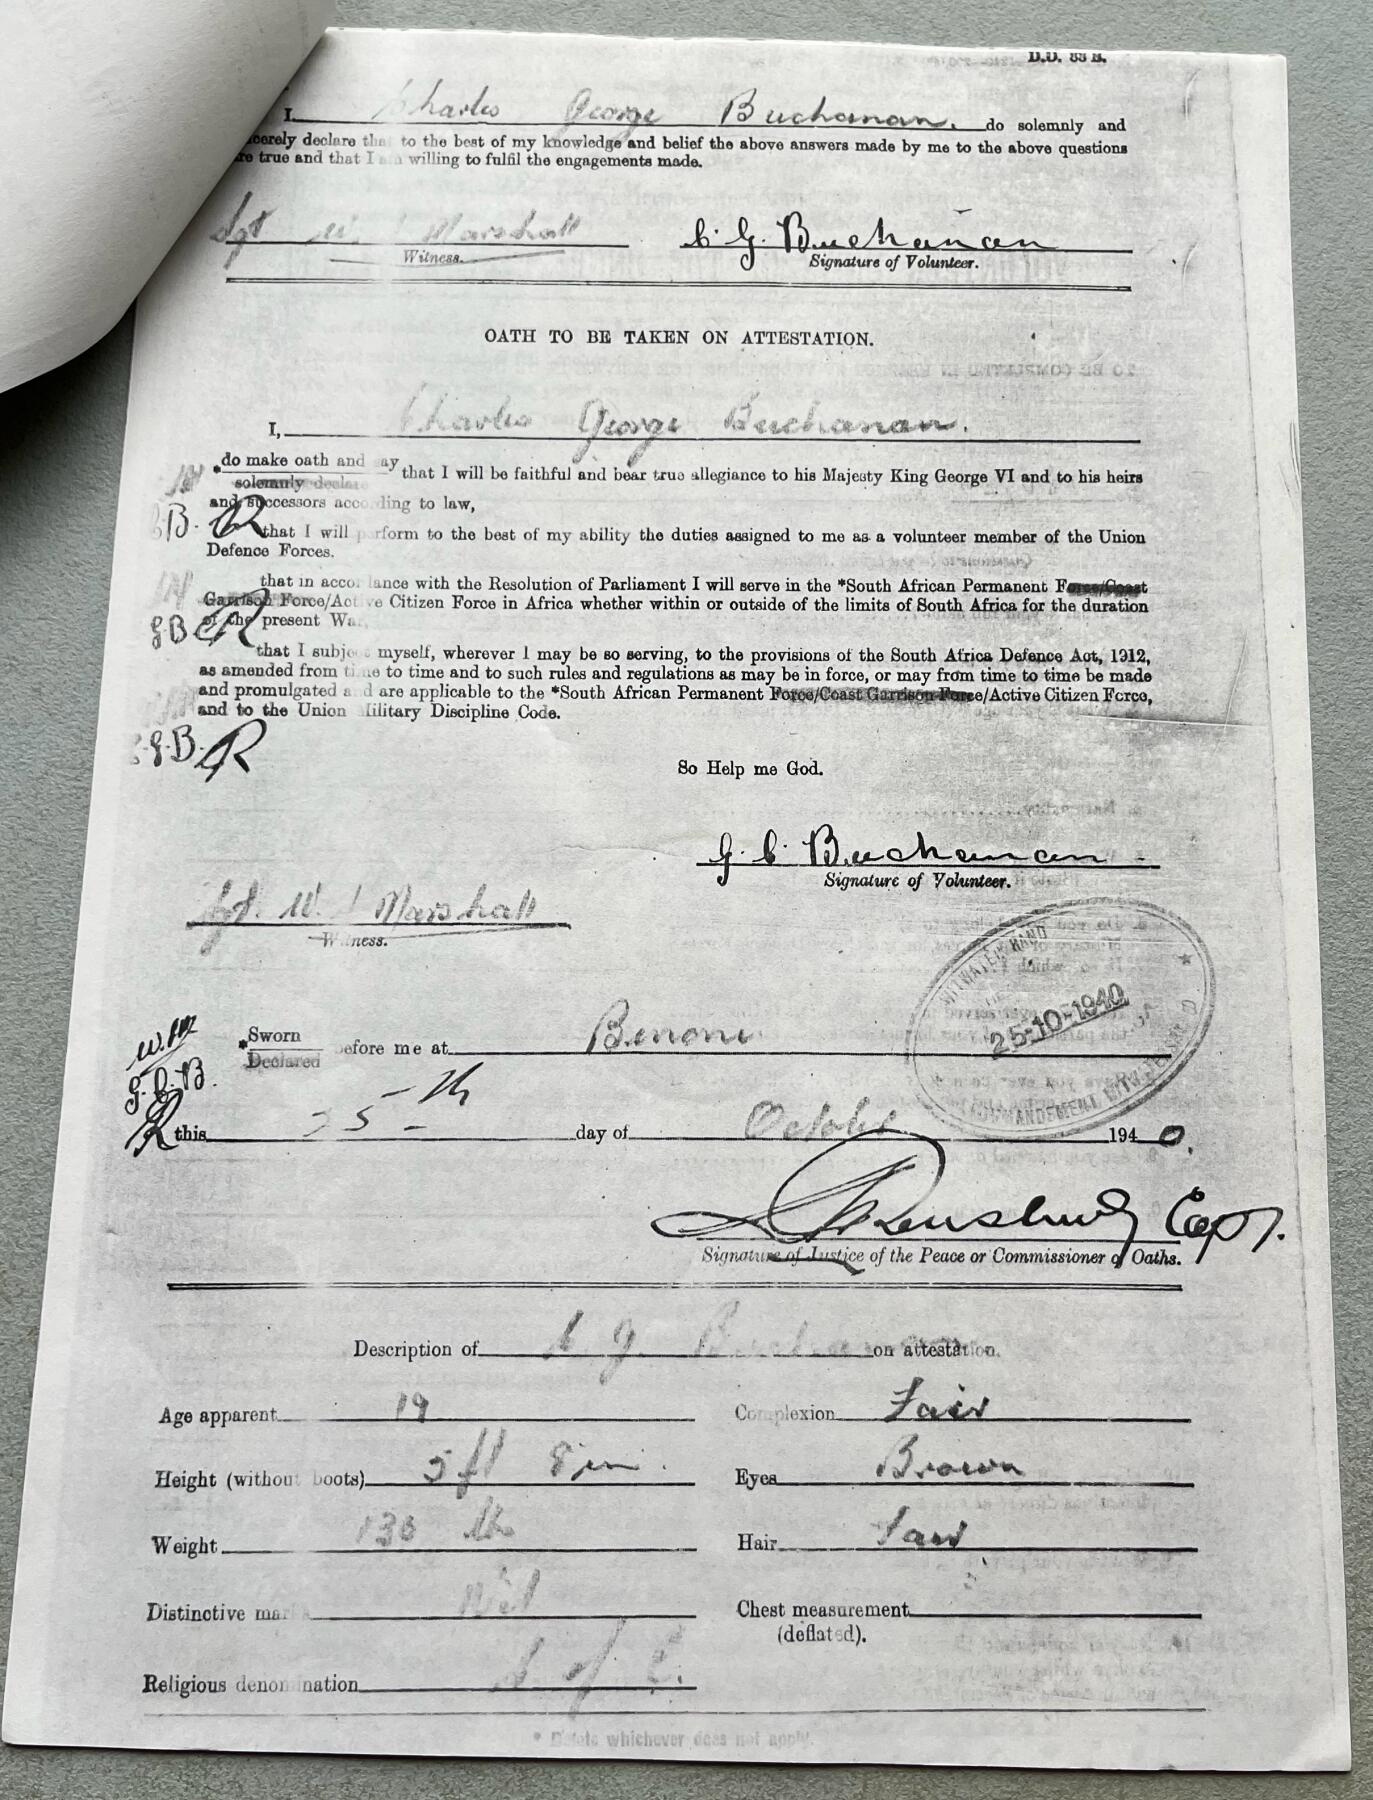 D.D. 53 B.
I. Charles George Buchanan. do solemnly and
cerely declare tha to the best of my knowledge and belief the above answers made by me to the above questions
re true and that I am willing to fulfil the engagements made.
Sgt W. J Marshall C. G. Buchanan
Witness. Signature of Volunteer.
OATH TO BE TAKEN ON ATTESTATION.
I, Charles George Buchanan.
*do make oath and say
solemnly declare
that I will be faithful and bear true allegiance to his Majesty King George VI and to his heirs
and successors according to law,
G.B. that I will perform to the best of my ability the duties assigned to me as a volunteer member of the Union
Defence Forces.
that in accordance with the Resolution of Parliament I will serve in the *South African Permanent Force/Coast
Garrison Force/Active Citizen Force in Africa whether within or outside of the limits of South Africa for the duration
of the present War,
G B
that I subject myself, wherever I may be so serving, to the provisions of the South Africa Defence Act, 1912,
as amended from time to time and to such rules and regulations as may be in force, or may from time to time be made
and promulgated and are applicable to the *South African Permanent Force/Coast Garrison Force/Active Citizen Force,
and to the Union Military Discipline Code.
C.G.B.
So Help me God.
G. C. Buchanan
Signature of Volunteer.
Sgt. W. J Marshall
Witness.
WITWATERSRAND
25-10-1940
KOMMANDEMENT WITWATERSRAND
W.M
G.C.B.
*Sworn
Declared
before me at Benoni
this 25th day of October 1940.
Capt.
Signature of Justice of the Peace or Commissioner of Oaths.
Description of C G Buchanan on attestation.
Age apparent 19 Complexion Fair
Height (without boots) 5 ft 8 in. Eyes Brown
Weight 130 lbs Hair Fair
Distinctive marks Nil Chest measurement
(deflated).
Religious denomination C of E.
* Delete whichever does not apply.